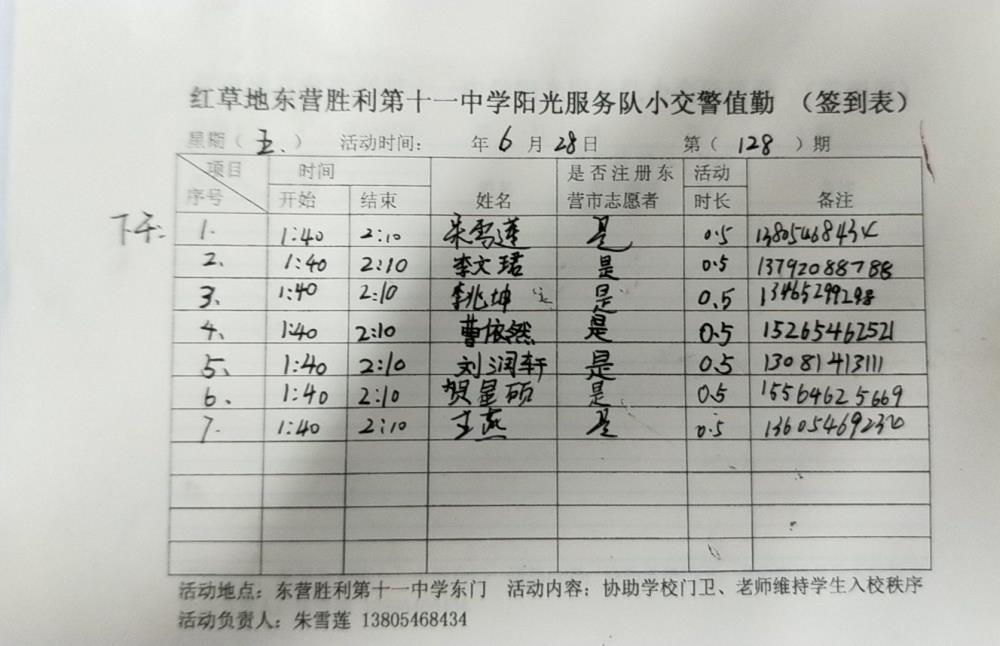 红草地东营胜利第十一中学阳光服务队小交警值勤 （签到表）
星期（ 五. ） 活动时间： 年 6 月 28 日 第（ 128 ）期
项目 时间 是否注册东 活动
序号 开始 结束 姓名 营市志愿者 时长 备注
下午: 1. 1:40 2:10 朱雪莲 是 0.5 13805468434
2. 1:40 2:10 李文珺 是 0.5 13792088788
3. 1:40 2:10 李兆坤 是 0.5 13465299298
4、 1:40 2:10 曹依然 是 0.5 15265462521
5、 1:40 2:10 刘润轩 是 0.5 13081413111
6. 1:40 2:10 贺显硕 是 0.5 15564625669
7. 1:40 2:10 王燕 是 0.5
活动地点：东营胜利第十一中学东门 活动内容：协助学校门卫、老师维持学生入校秩序
活动负责人：朱雪莲 13805468434